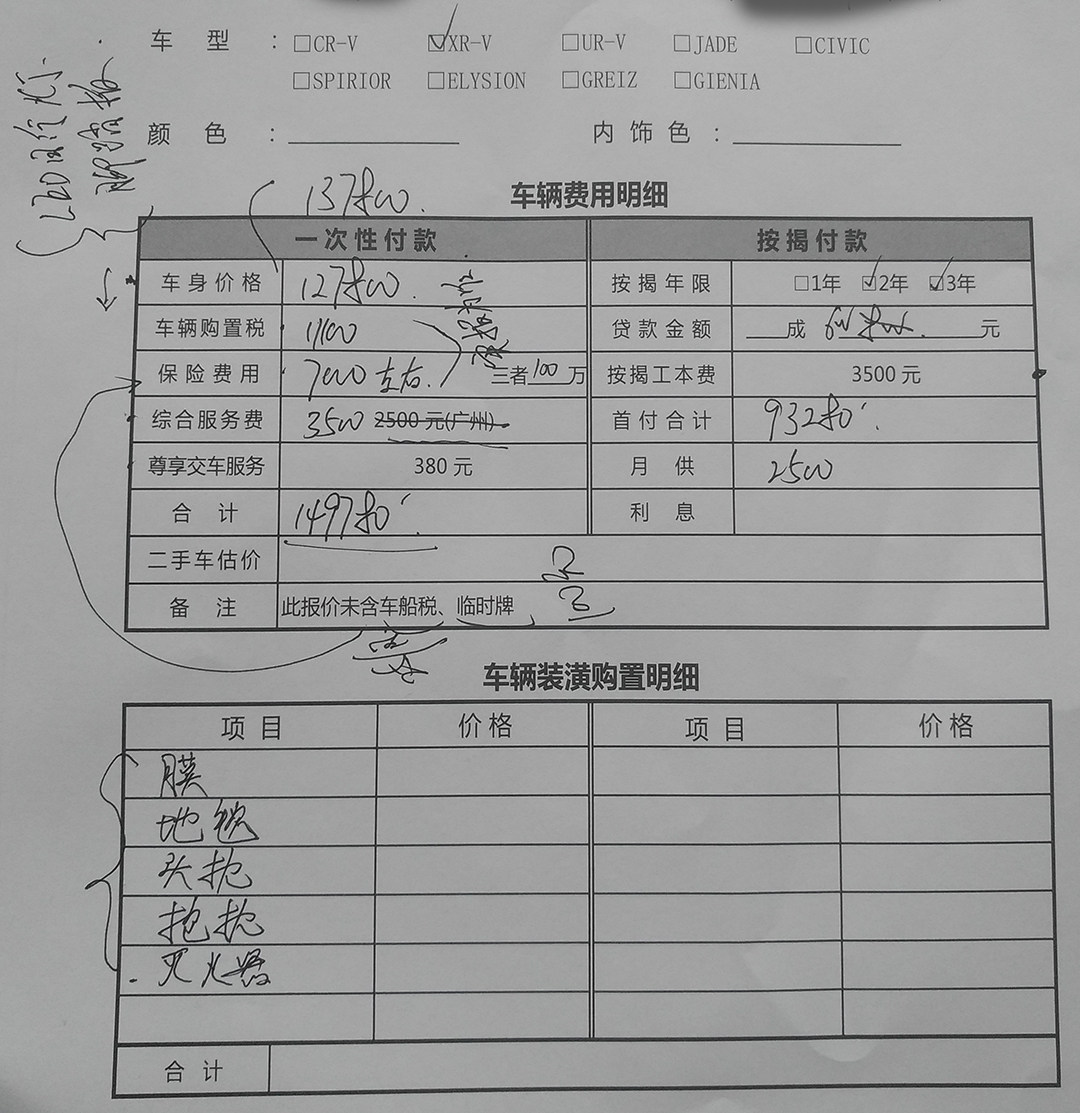 车 型 : □CR-V ☑XR-V □UR-V □JADE □CIVIC
□SPIRIOR □ELYSION □GREIZ □GIENIA
颜 色 : 内 饰 色 :
LED日行灯
137800.
车辆费用明细
一次性付款 按揭付款
车身价格 127800. 按揭年限 □1年 ☑2年 ☑3年
车辆购置税 11100 贷款金额 成 元
保险费用 7000左右. 三者100万 按揭工本费 3500元
综合服务费 3500 2500元(广州) 首付合计 93280
尊享交车服务 380元 月 供 2500
合 计 149780 利 息
二手车估价
备 注 此报价未含车船税、临时牌
车辆装潢购置明细
项 目 价 格 项 目 价 格
膜
地毯
头枕
抱枕
灭火器
合 计